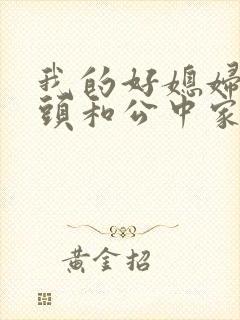 我的好媳婦
頭和公中家
黃金招